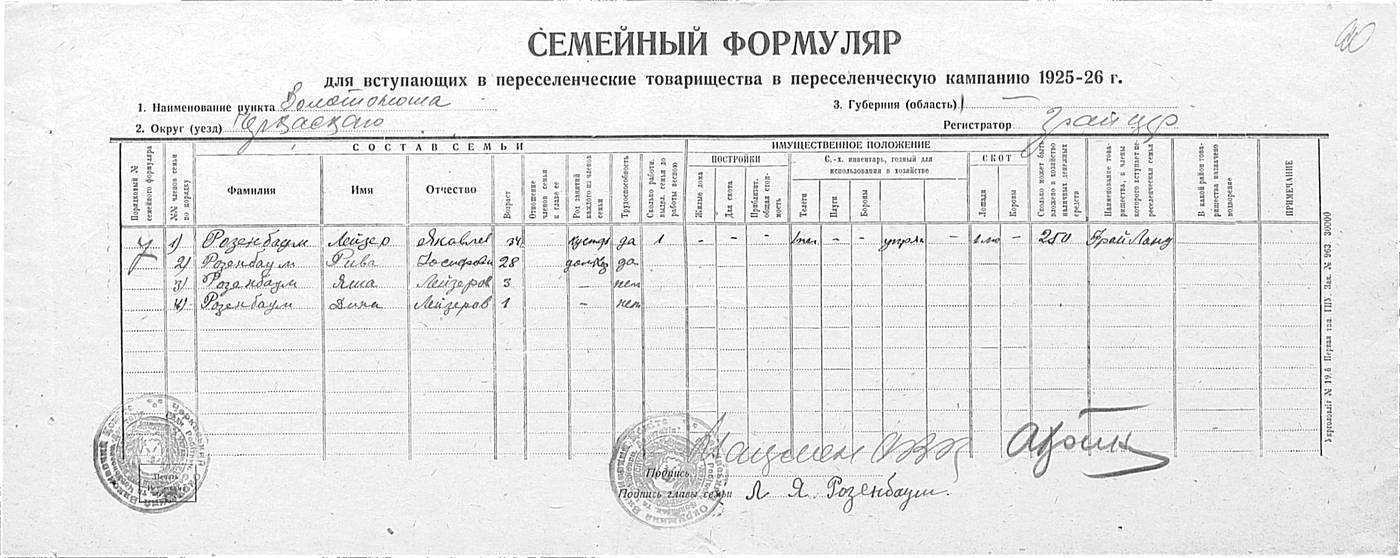 СЕМЕЙНЫЙ ФОРМУЛЯР
для вступающих в переселенческие товарищества в переселенческую кампанию 1925-26 г.
1. Наименование пункта Золотоноша
3. Губерния (область) —
2. Округ (уезд) Черкасского
Регистратор
СОСТАВ СЕМЬИ
ИМУЩЕСТВЕННОЕ ПОЛОЖЕНИЕ
Порядковый № семейного формуляра
№№ членов семьи по порядку
Фамилия
Имя
Отчество
Возраст
Отношение членов семьи к главе ее
Род занятий каждого из членов семьи
Трудоспособность
Сколько работн. выдел. семья до работы весною
ПОСТРОЙКИ
Жилые дома
Для скота
Прибавит. общая стоимость
С.-х. инвентарь, годный для использования в хозяйстве
Телеги
Плуги
Бороны
СКОТ
Лошади
Коровы
Сколько может быть вложено в хозяйство наличных денежных средств
Наименование товарищества, в члены которого вступает переселенческая семья
В какой район товарищества назначено водворение
ПРИМЕЧАНИЕ
7 1) Розенбаум Лейзер Яковлев 34 да 1 - - - - - - - 250 Фрай Ланд
2) Розенбаум Рива Иосифовн 28 да
3) Розенбаум Яша Лейзеров 3 — нет
4) Розенбаум Дина Лейзеров 1 — нет
Печать
Подпись
Подпись главы семьи Л Я Розенбаум.
Первая тип. ГПУ. Зак. № 963. 30000